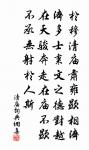 於穆清廟肅雝顯相濟
濟多士秉文之德對越
在天駿奔走在廟不顯
不承無射於人斯
清廟